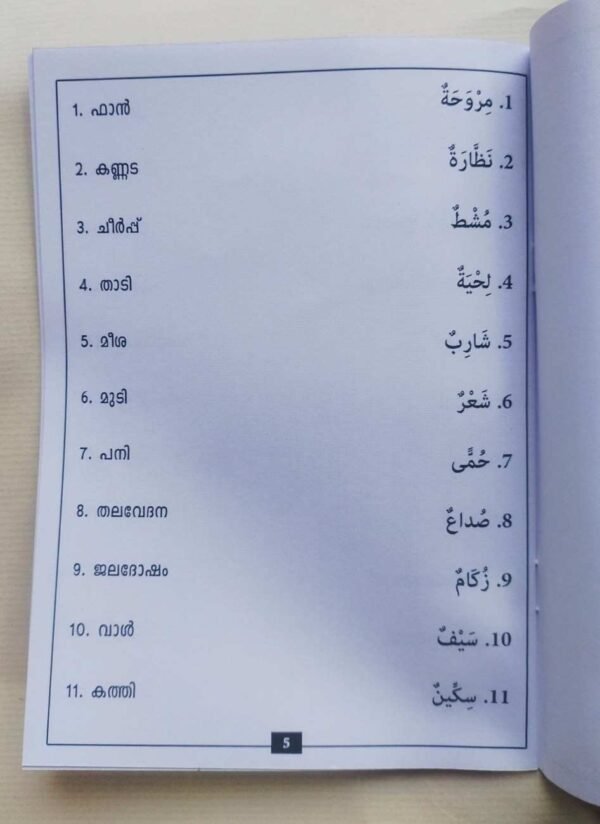 1. ഫാൻ مِرْوَحَةٌ .1
2. കണ്ണട نَظَّارَةٌ .2
3. ചീർപ്പ് مُشْطٌ .3
4. താടി لِحْيَةٌ .4
5. മീശ شَارِبٌ .5
6. മുടി شَعْرٌ .6
7. പനി حُمًّى .7
8. തലവേദന صُداعٌ .8
9. ജലദോഷം زُكَامٌ .9
10. വാൾ سَيْفٌ .10
11. കത്തി سِكِّينٌ .11
5